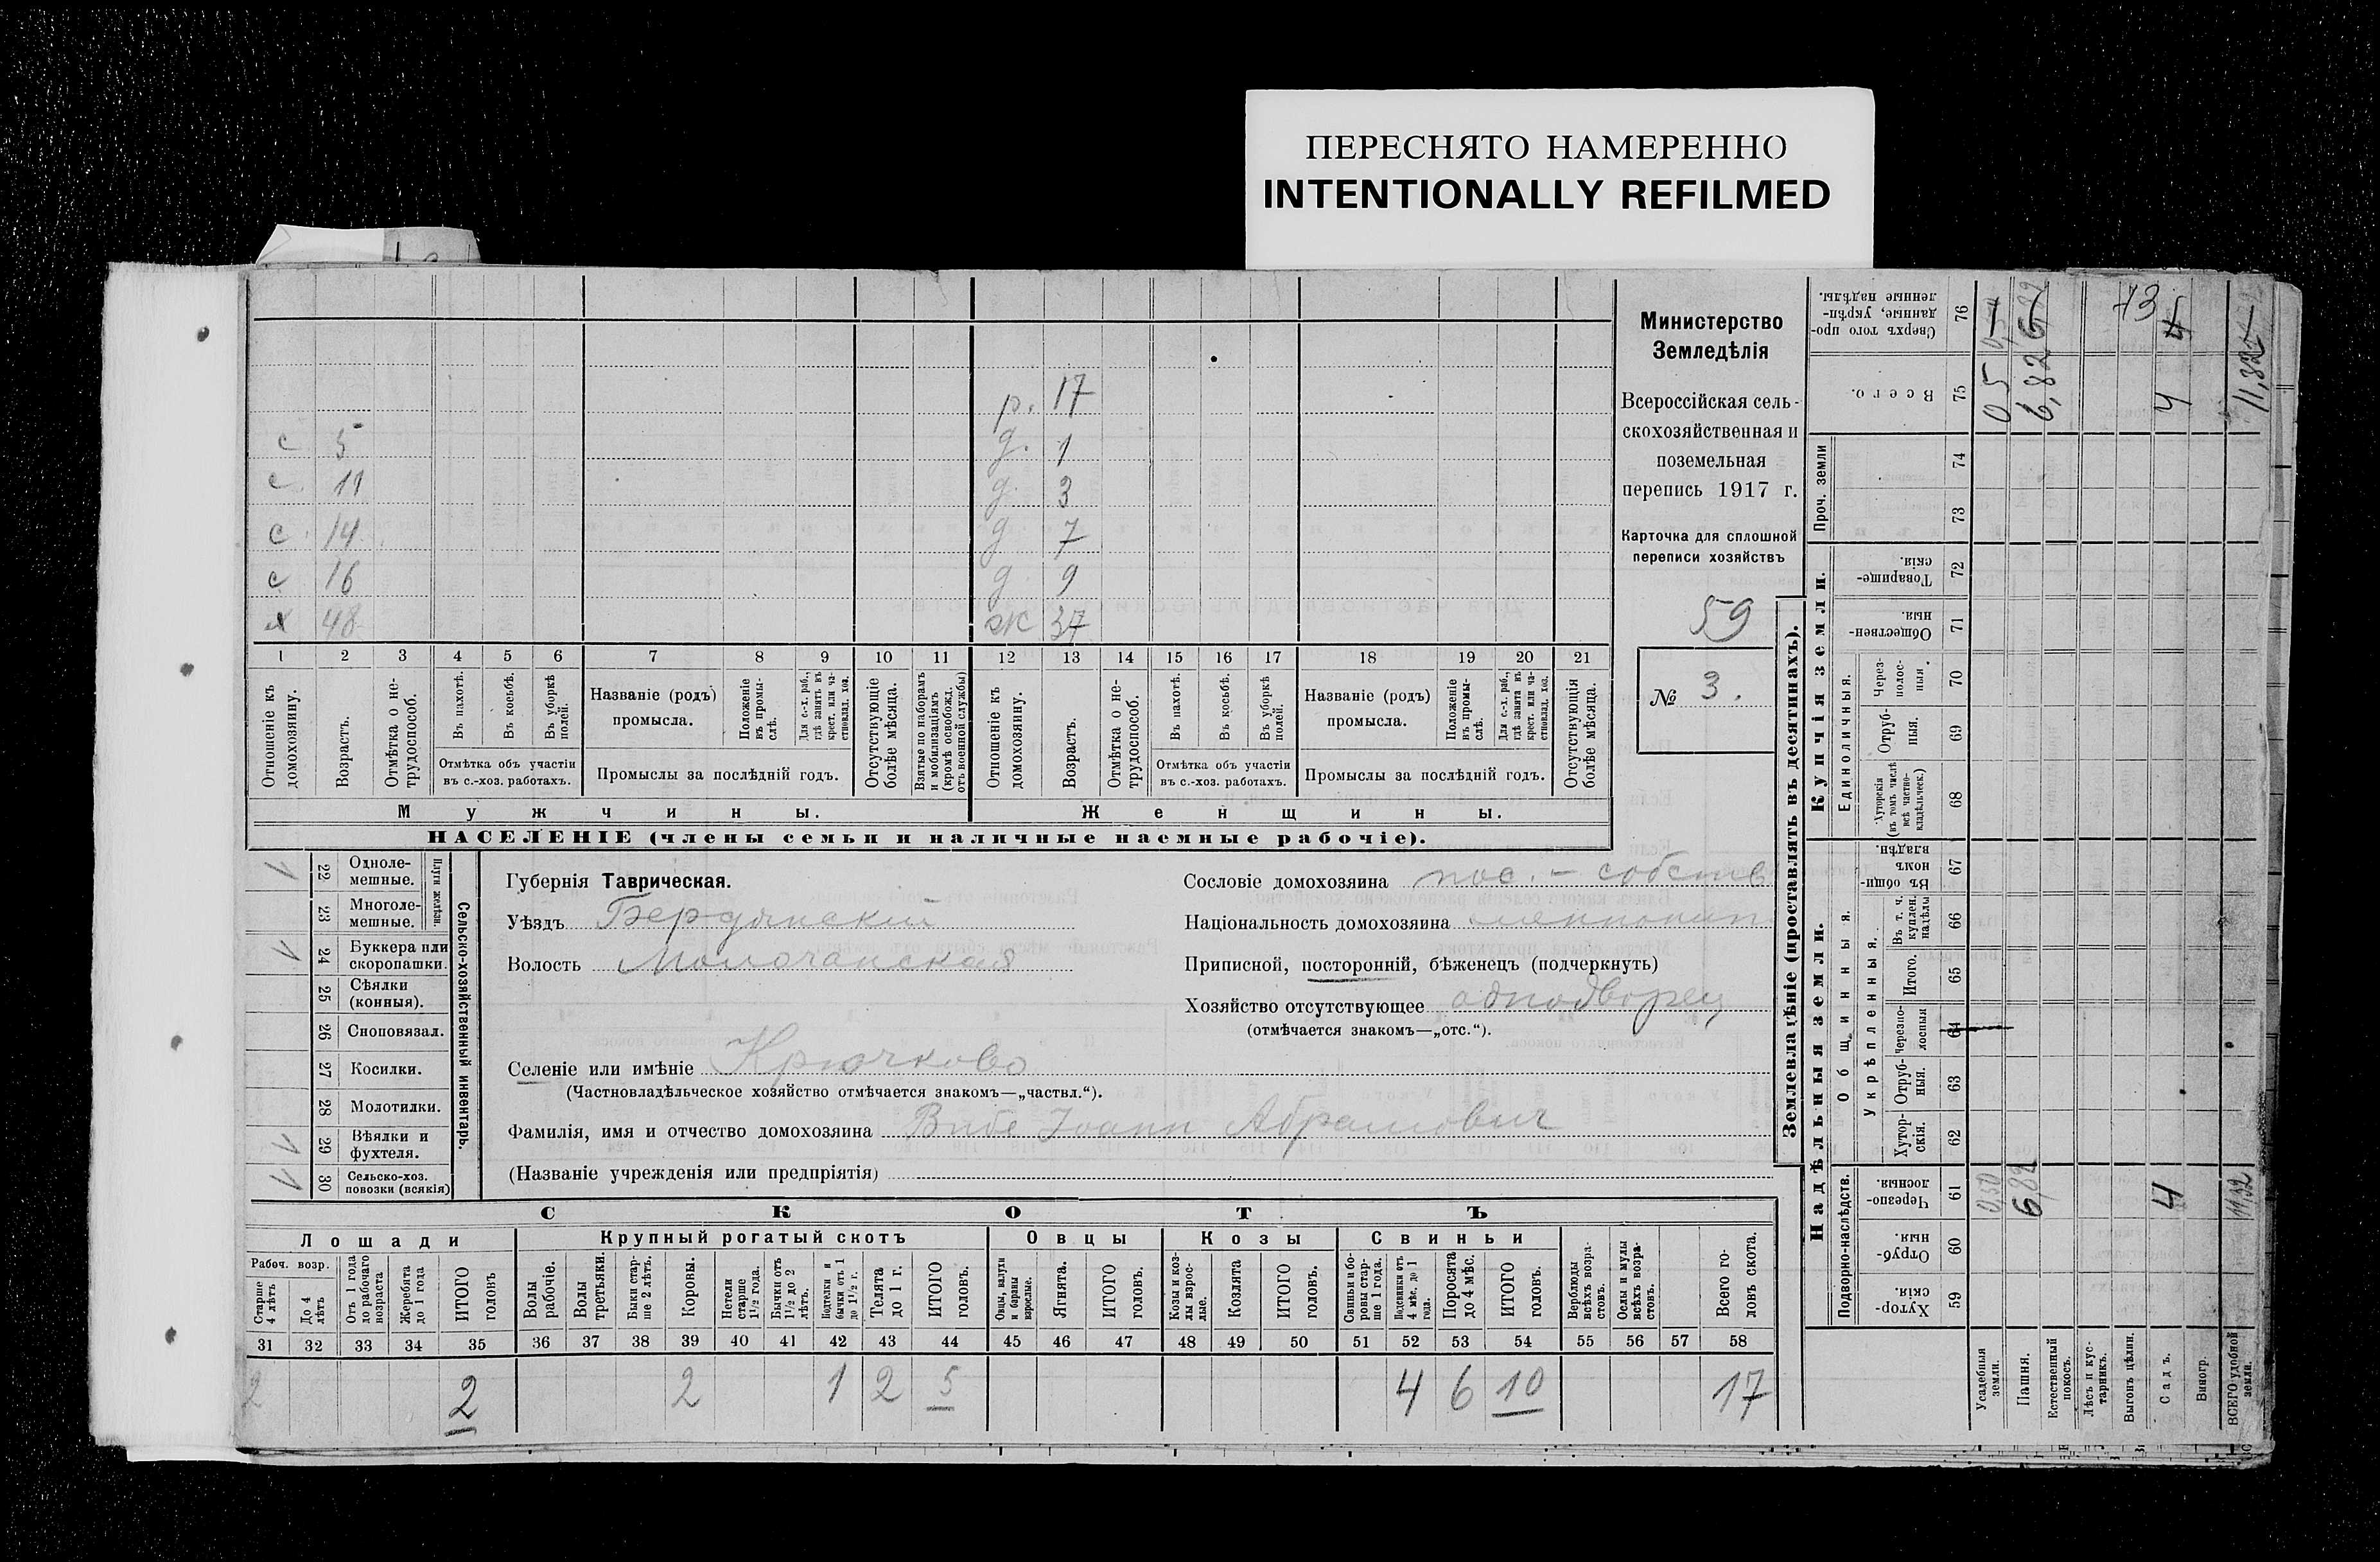 ПЕРЕСНЯТО НАМЕРЕННО
INTENTIONALLY REFILMED
р. 17
с 5 д. 1
с 11 д. 3
с 14 д 7
с 16 д. 9
х 48 ж 37
1 2 3 4 5 6 7 8 9 10 11 12 13 14 15 16 17 18 19 20 21
Отношеніе къ домохозяину.
Возрастъ.
Отмѣтка о не-трудоспособ.
Въ пахотѣ.
Въ косьбѣ.
Въ уборкѣ полей.
Отмѣтка объ участіи въ с.-хоз. работахъ.
Названіе (родъ) промысла.
Положеніе въ промы-слѣ.
Для с.-х. раб., гдѣ занятъ въ крест. или ча-стновлад. хоз.
Промыслы за послѣдній годъ.
Отсутствующіе болѣе мѣсяца.
Взятые по наборамъ и мобилизаціямъ (кромѣ освобожд. отъ военной службы)
Отношеніе къ домохозяину.
Возрастъ.
Отмѣтка о не-трудоспособ.
Въ пахотѣ.
Въ косьбѣ.
Въ уборкѣ полей.
Отмѣтка объ участіи въ с.-хоз. работахъ.
Названіе (родъ) промысла.
Положеніе въ промы-слѣ.
Для с.-х. раб., гдѣ занята въ крест. или ча-стновлад. хоз.
Промыслы за послѣдній годъ.
Отсутствующія болѣе мѣсяца.
Мужчины. Женщины.
НАСЕЛЕНІЕ (члены семьи и наличные наемные рабочіе).
Министерство
Земледѣлія
Всероссійская сель-
скохозяйственная и
поземельная
перепись 1917 г.
Карточка для сплошной
переписи хозяйствъ
59
№ 3.
Сельско-хозяйственный инвентарь.
Плуги желѣзн.
1 22 Одноле-мешные.
23 Многоле-мешные.
1 24 Буккера или скоропашки.
25 Сѣялки (конныя).
26 Сноповязал.
27 Косилки.
28 Молотилки.
29 Вѣялки и фухтеля.
30 Сельско-хоз. повозки (всякія)
Губернія Таврическая.
Уѣздъ Бердянскій
Волость Молочанская
Селеніе или имѣніе Крючково
(Частновладѣльческое хозяйство отмѣчается знакомъ—„частвл.“).
Фамилія, имя и отчество домохозяина Вибе Іоаннъ Абрамовичъ
(Названіе учрежденія или предпріятія)
Сословіе домохозяина пос. - собств
Національность домохозяина меннонит
Приписной, посторонній, бѣженецъ (подчеркнуть)
Хозяйство отсутствующее однодворец
(отмѣчается знакомъ—„отс.“).
СКОТЪ
Лошади Крупный рогатый скотъ Овцы Козы Свиньи
Рабоч. возр.
Старше 4 лѣтъ
До 4 лѣтъ
Отъ 1 года до рабочаго возраста
Жеребята до 1 года
ИТОГО головъ
Волы рабочіе.
Волы третьяки.
Быки стар-ше 2 лѣтъ.
Коровы.
Нетели старше 1½ года.
Бычки отъ 1½ до 2 лѣтъ.
Водтелки и бычки отъ 1 до 1½ г.
Телята до 1 г.
ИТОГО головъ.
Овцы, валухи и бараны взрослые.
Ягнята.
ИТОГО головъ.
Козы и коз-лы взрос-лые.
Козлята
ИТОГО головъ.
Свиньи и бо-ровы стар-ше 1 года.
Подсвинки отъ 4 мѣс. до 1 года.
Поросята до 4 мѣс.
ИТОГО головъ.
Верблюды всѣхъ возра-стовъ.
Ослы и мулы всѣхъ возра-стовъ.
Всего го-ловъ скота.
31 32 33 34 35 36 37 38 39 40 41 42 43 44 45 46 47 48 49 50 51 52 53 54 55 56 57 58
2 2 2 1 2 5 4 6 10 17
Землевладѣніе (проставлять въ десятинахъ).
Надѣльныя земли. Купчія земли. Проч. земли
Подворно-наслѣдств.
Общинныя.
Укрѣпленныя.
Единоличныя.
Сверхъ того про-данные, укрѣп-ленные надѣлы. 76
Всего. 75 05 6,82 4 11,32
74
73
Товарище-скія. 72
Обществен-ныя. 71
Через-полос-ныя. 70
Отруб-ныя. 69
Хуторскія (въ томъ числѣ всѣ частно-владѣльческ.) 68
Въ общи-номъ владѣн. 67
Въ т. ч. куплен. надѣлы 66
Итого. 65
Черезпо-лосныя 64
Отруб-ныя. 63
Хутор-скія. 62
Черезпо-лосныя. 61 0,50 6,82 4 11,32
Отруб-ныя. 60
Хутор-скія. 59
Усадебныя земли.
Пашня.
Естественный покосъ.
Лѣсъ и кус-тарникъ.
Выгонъ цѣлин.
Садъ.
Виногр.
ВСЕГО удобной земли.